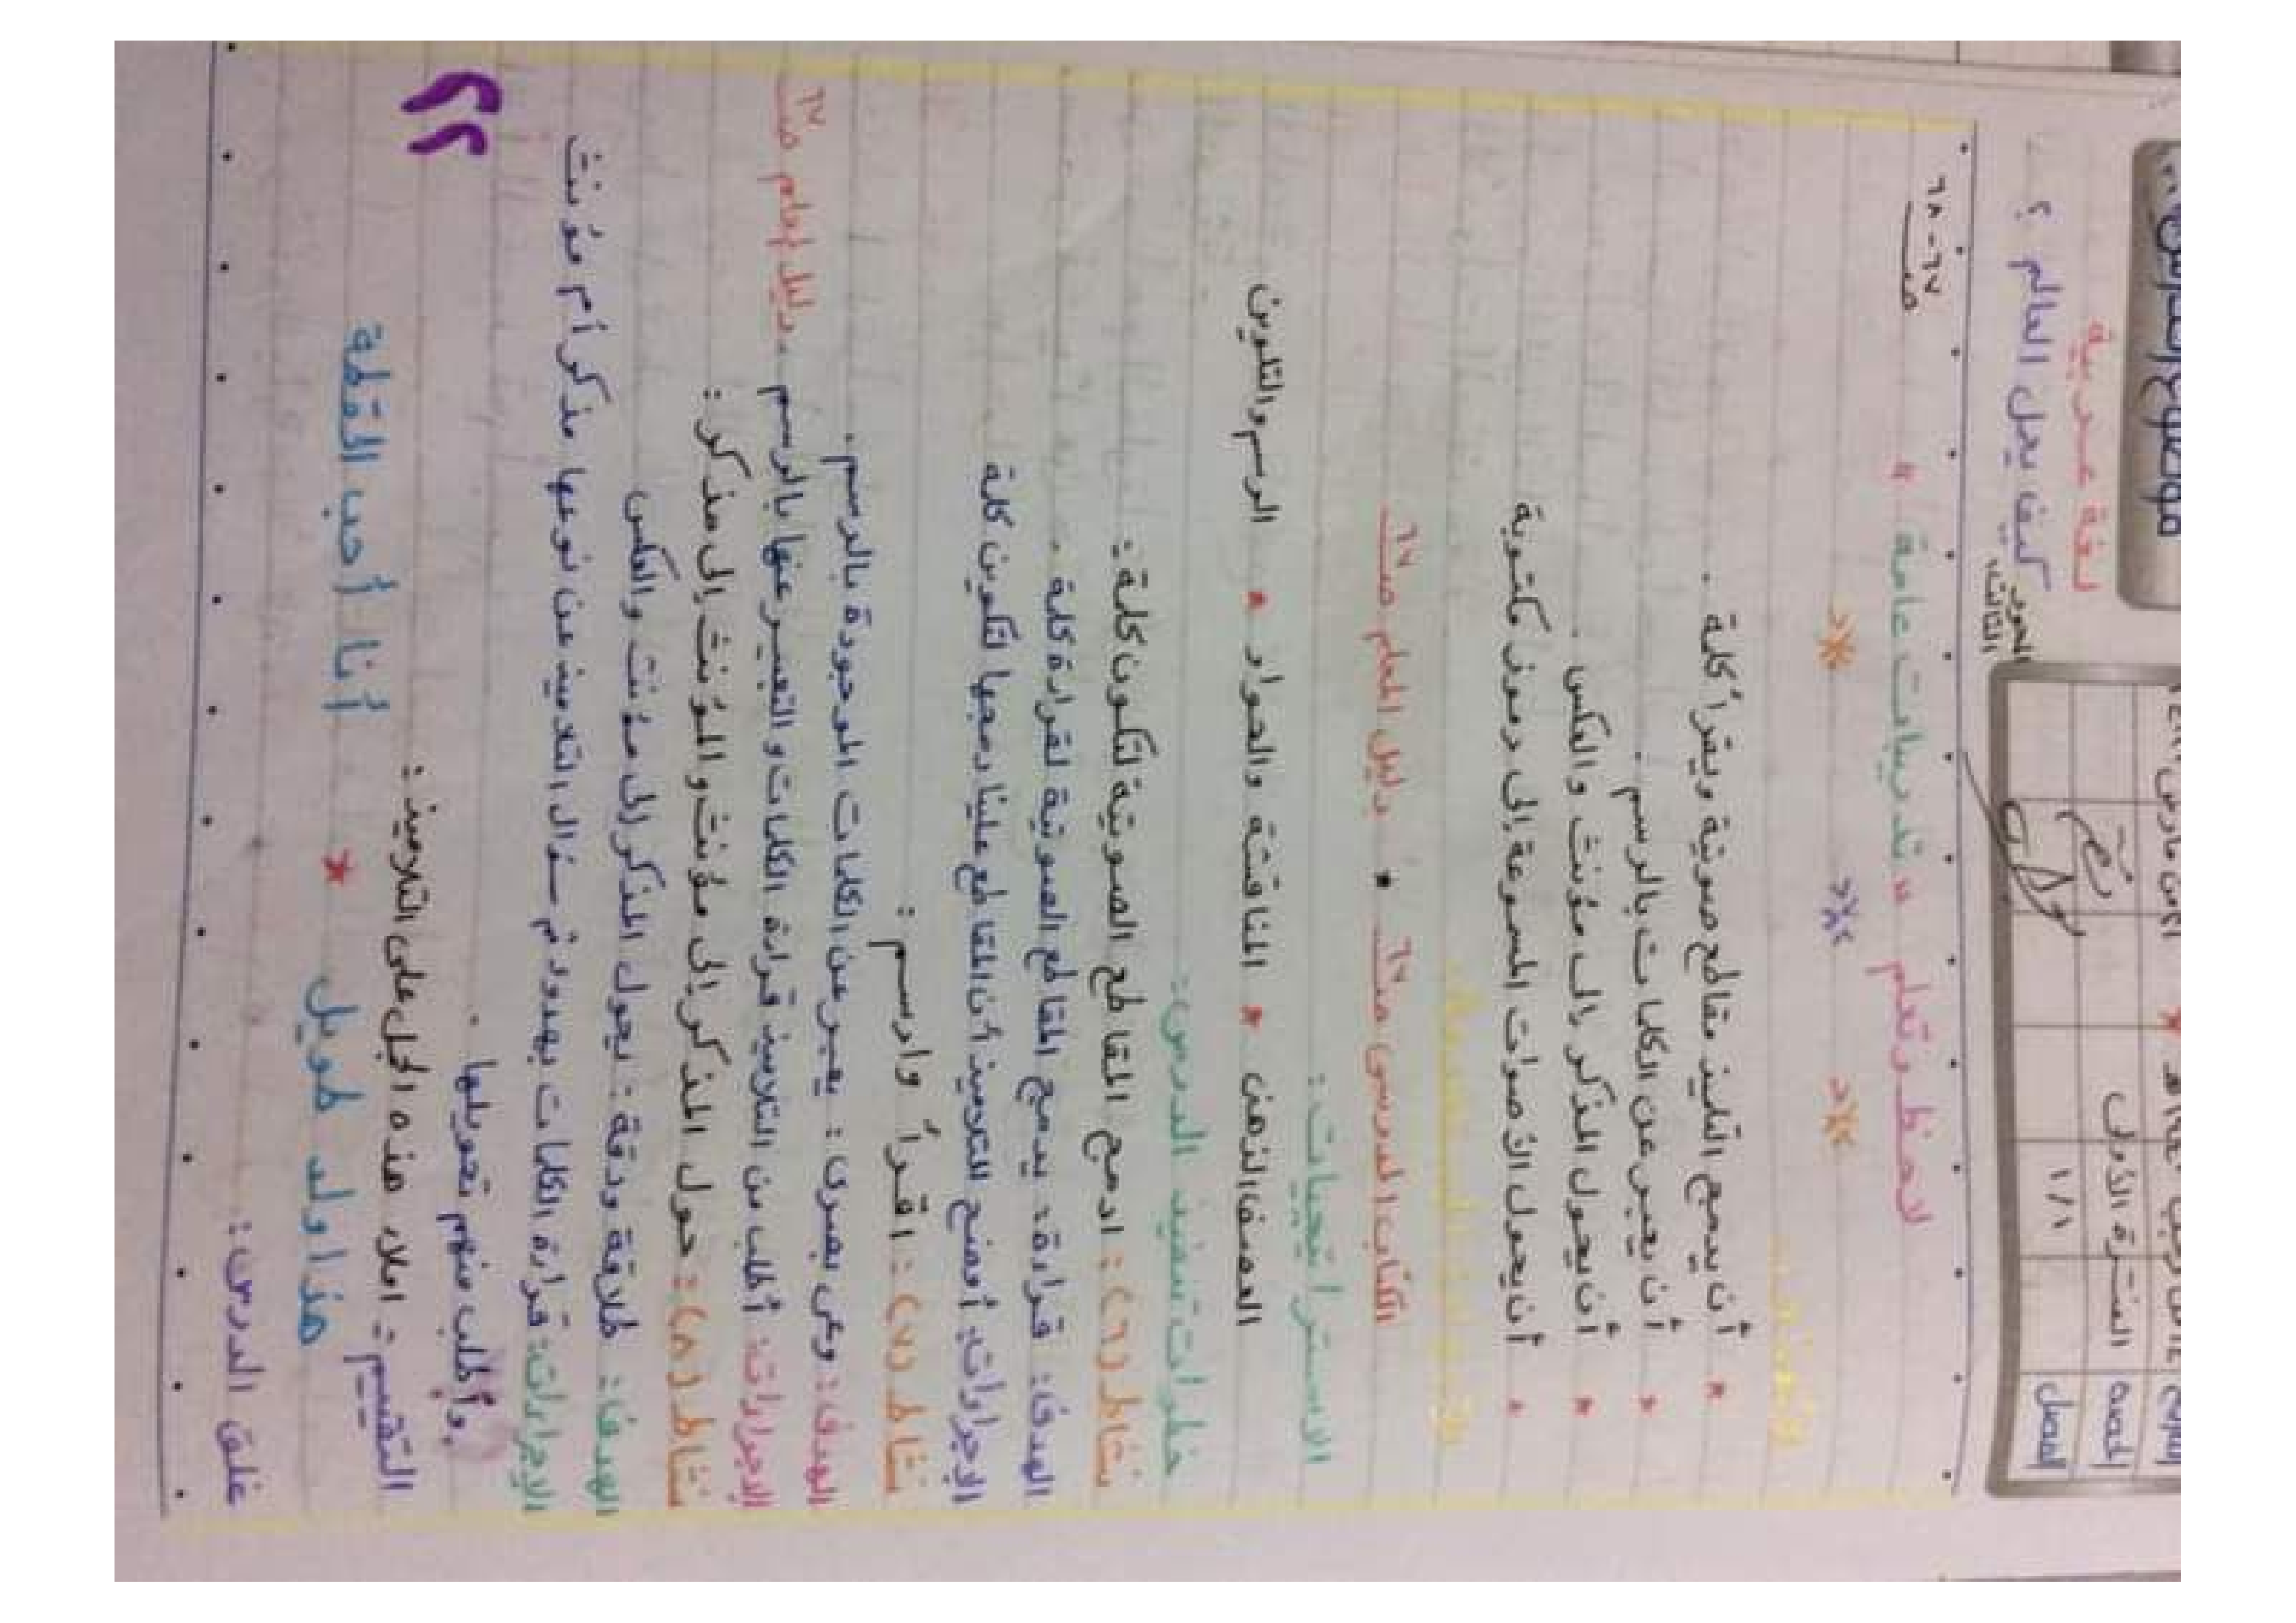 موضوع الدرس
لغة عربية
كيف يعمل العالم ؟
المحور الثالث
الحصة
الفترة الأولى
الفصل
١/١
لاحظ وتعلم * تدريبات عامة * صـ ٦٧-٦٨
* أن يدمج التلميذ مقاطع صوتية ويقرأ كلمة .
* أن يعبر عن الكلمات بالرسم .
* أن يحول المذكر إلى مؤنث والعكس .
* أن يحول الأصوات المسموعة إلى رموز مكتوبة
الكتاب المدرسى صـ ٦٧ * دليل المعلم صـ ٦٧
الاستراتيجيات :
العصف الذهنى * المناقشة والحوار * الرسم والتلوين
خطوات تنفيذ الدرس :
نشاط (٦) : ادمج المقاطع الصوتية لتكون كلمة :
الهدف : قراءة : يدمج المقاطع الصوتية لقراءة كلمة .
الإجراءات : أوضح للتلاميذ أن المقاطع علينا دمجها لتكوين كلمة
نشاط (٧) : اقرأ وارسم :
الهدف : وعى بصرى : يعبر عن الكلمات الموجودة بالرسم .
الإجراءات : أطلب من التلاميذ قراءة الكلمات والتعبير عنها بالرسم . دليل المعلم صـ ٦٧
نشاط (٨) : حول المذكر إلى مؤنث والمؤنث إلى مذكر :
الهدف : طلاقة ودقة : يحول المذكر إلى مؤنث والعكس
الإجراءات : قراءة الكلمات بهدوء ثم سؤال التلاميذ عن نوعها مذكر أم مؤنث
وأطلب منهم تحويلها .
التقييم : املاء هذه الجمل على التلاميذ :
هذا ولد طويل * أنا أحب القطة
غلق الدرس :
٢٢